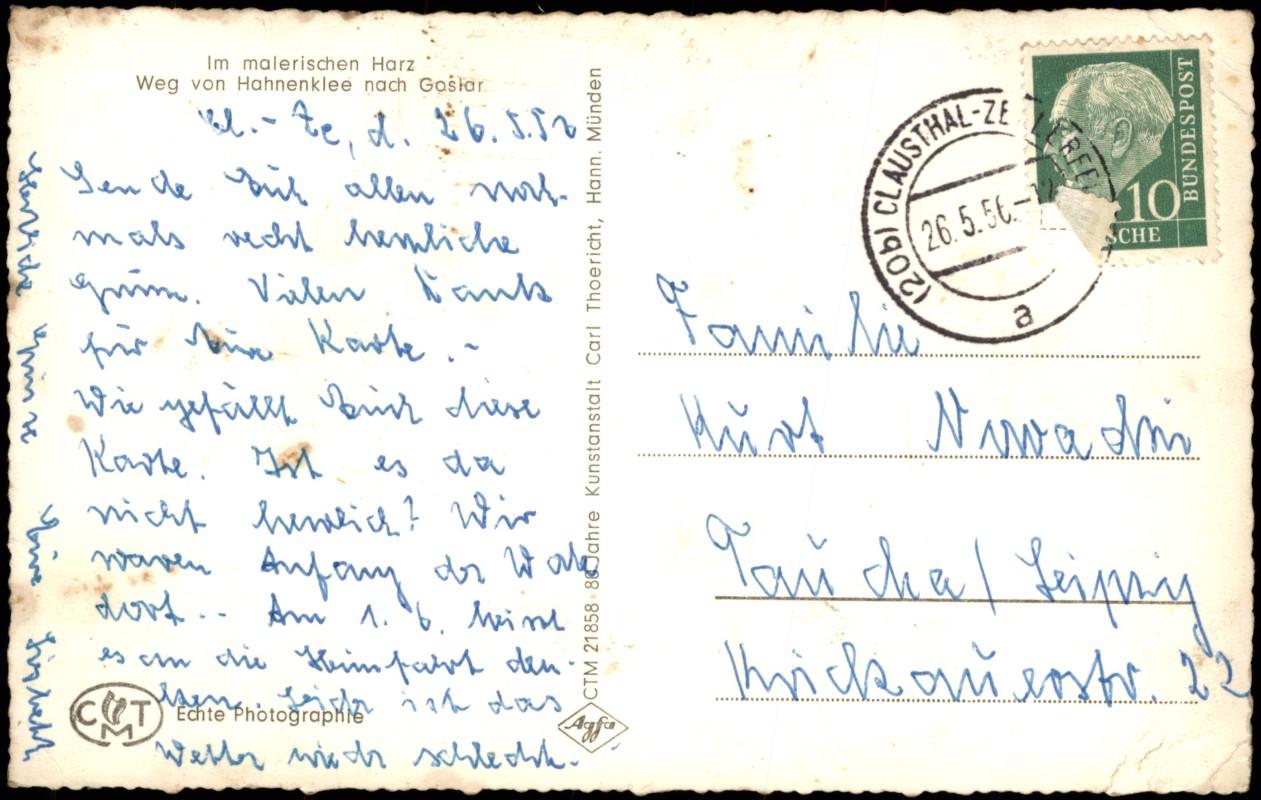 Im malerischen Harz
Weg von Hahnenklee nach Goslar
Cl.-Ze, d. 26.5.56
Sende Euch allen noch-
mals recht herzliche
Grüsse. Vielen Dank
für Eure Karte.-
Wie gefällt Euch diese
Karte. Ist es da
nicht herrlich? Wir
waren Anfang der Woche
dort.- Am 1. 6. heisst
es an die Heimfahrt den-
ken. Leider ist das
Wetter wieder schlecht.
Herzliche Grüsse
CMT
Echte Photographie
CTM 21858 · 80 Jahre Kunstanstalt Carl Thoericht, Hann. Münden
Agfa
(20b) CLAUSTHAL-ZELLERFE
26.5.56.-12
a
10
BUNDESPOST
SCHE
Familie
Kurt
Taucha / Leipzig
22